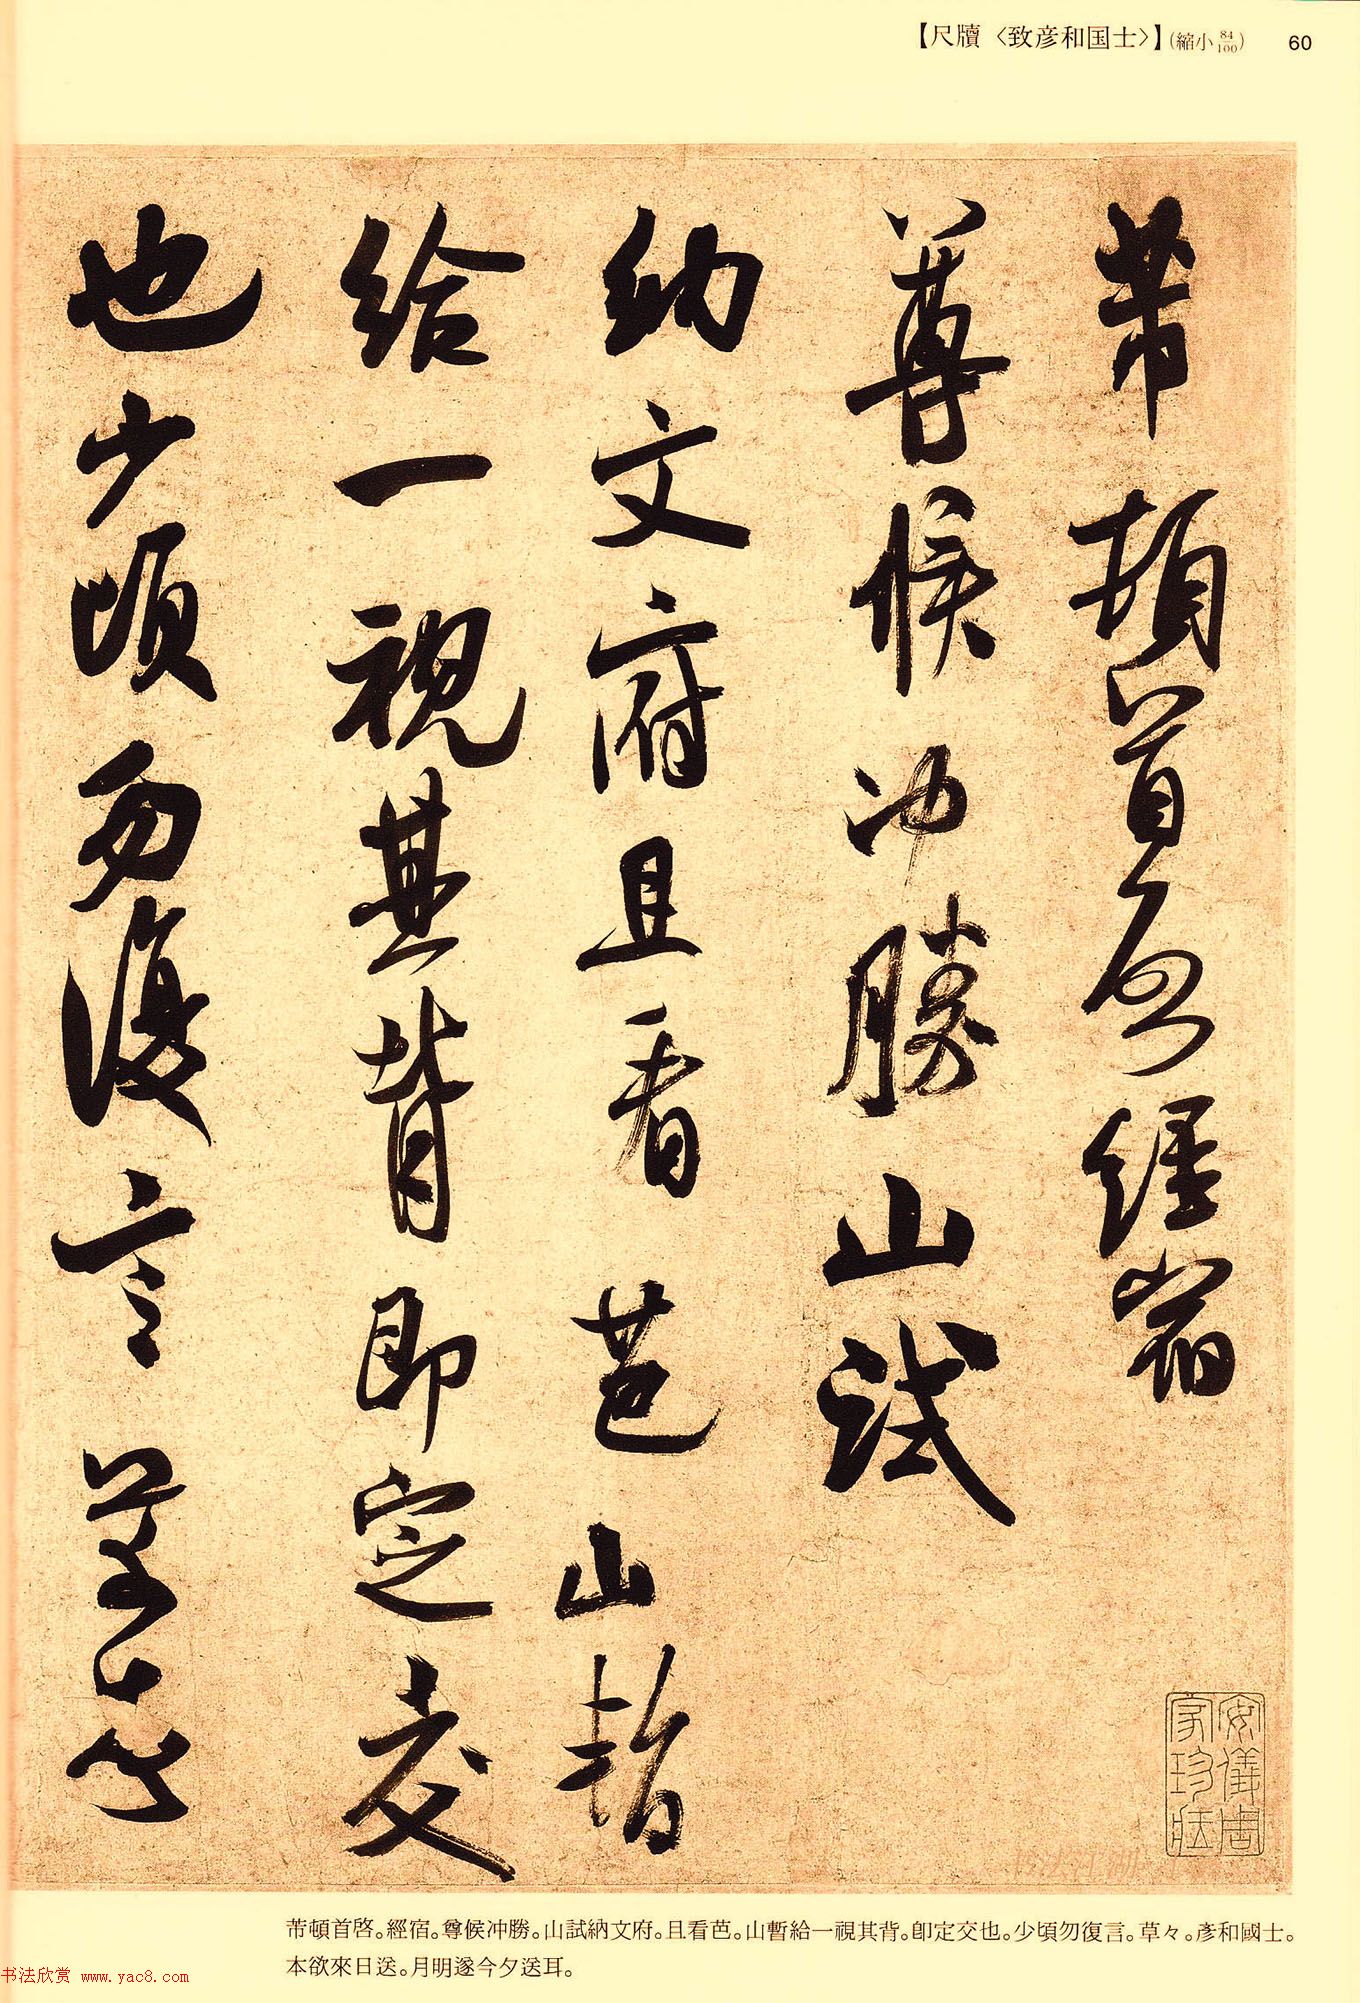 【尺牘〈致彦和国士〉】(縮小84/100) 60
芾頓首啓經宿
尊候冲勝山試
納文府且看芭山暫
給一視其背即定交
也少頃勿復言草々
安儀周
家珍藏
芾頓首啓。經宿。尊候冲勝。山試納文府。且看芭。山暫給一視其背。卽定交也。少頃勿復言。草々。彥和國士。
本欲來日送。月明遂今夕送耳。
书法欣赏 www.yac8.com